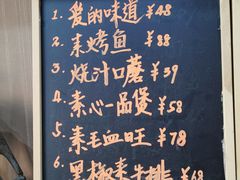 1. 爱的味道 ¥48
2. 素烤鱼 ¥88
3. 烧汁口蘑 ¥39
4. 素心一品煲 ¥58
5. 素毛血旺 ¥78
6. 黑椒素牛排 ¥68